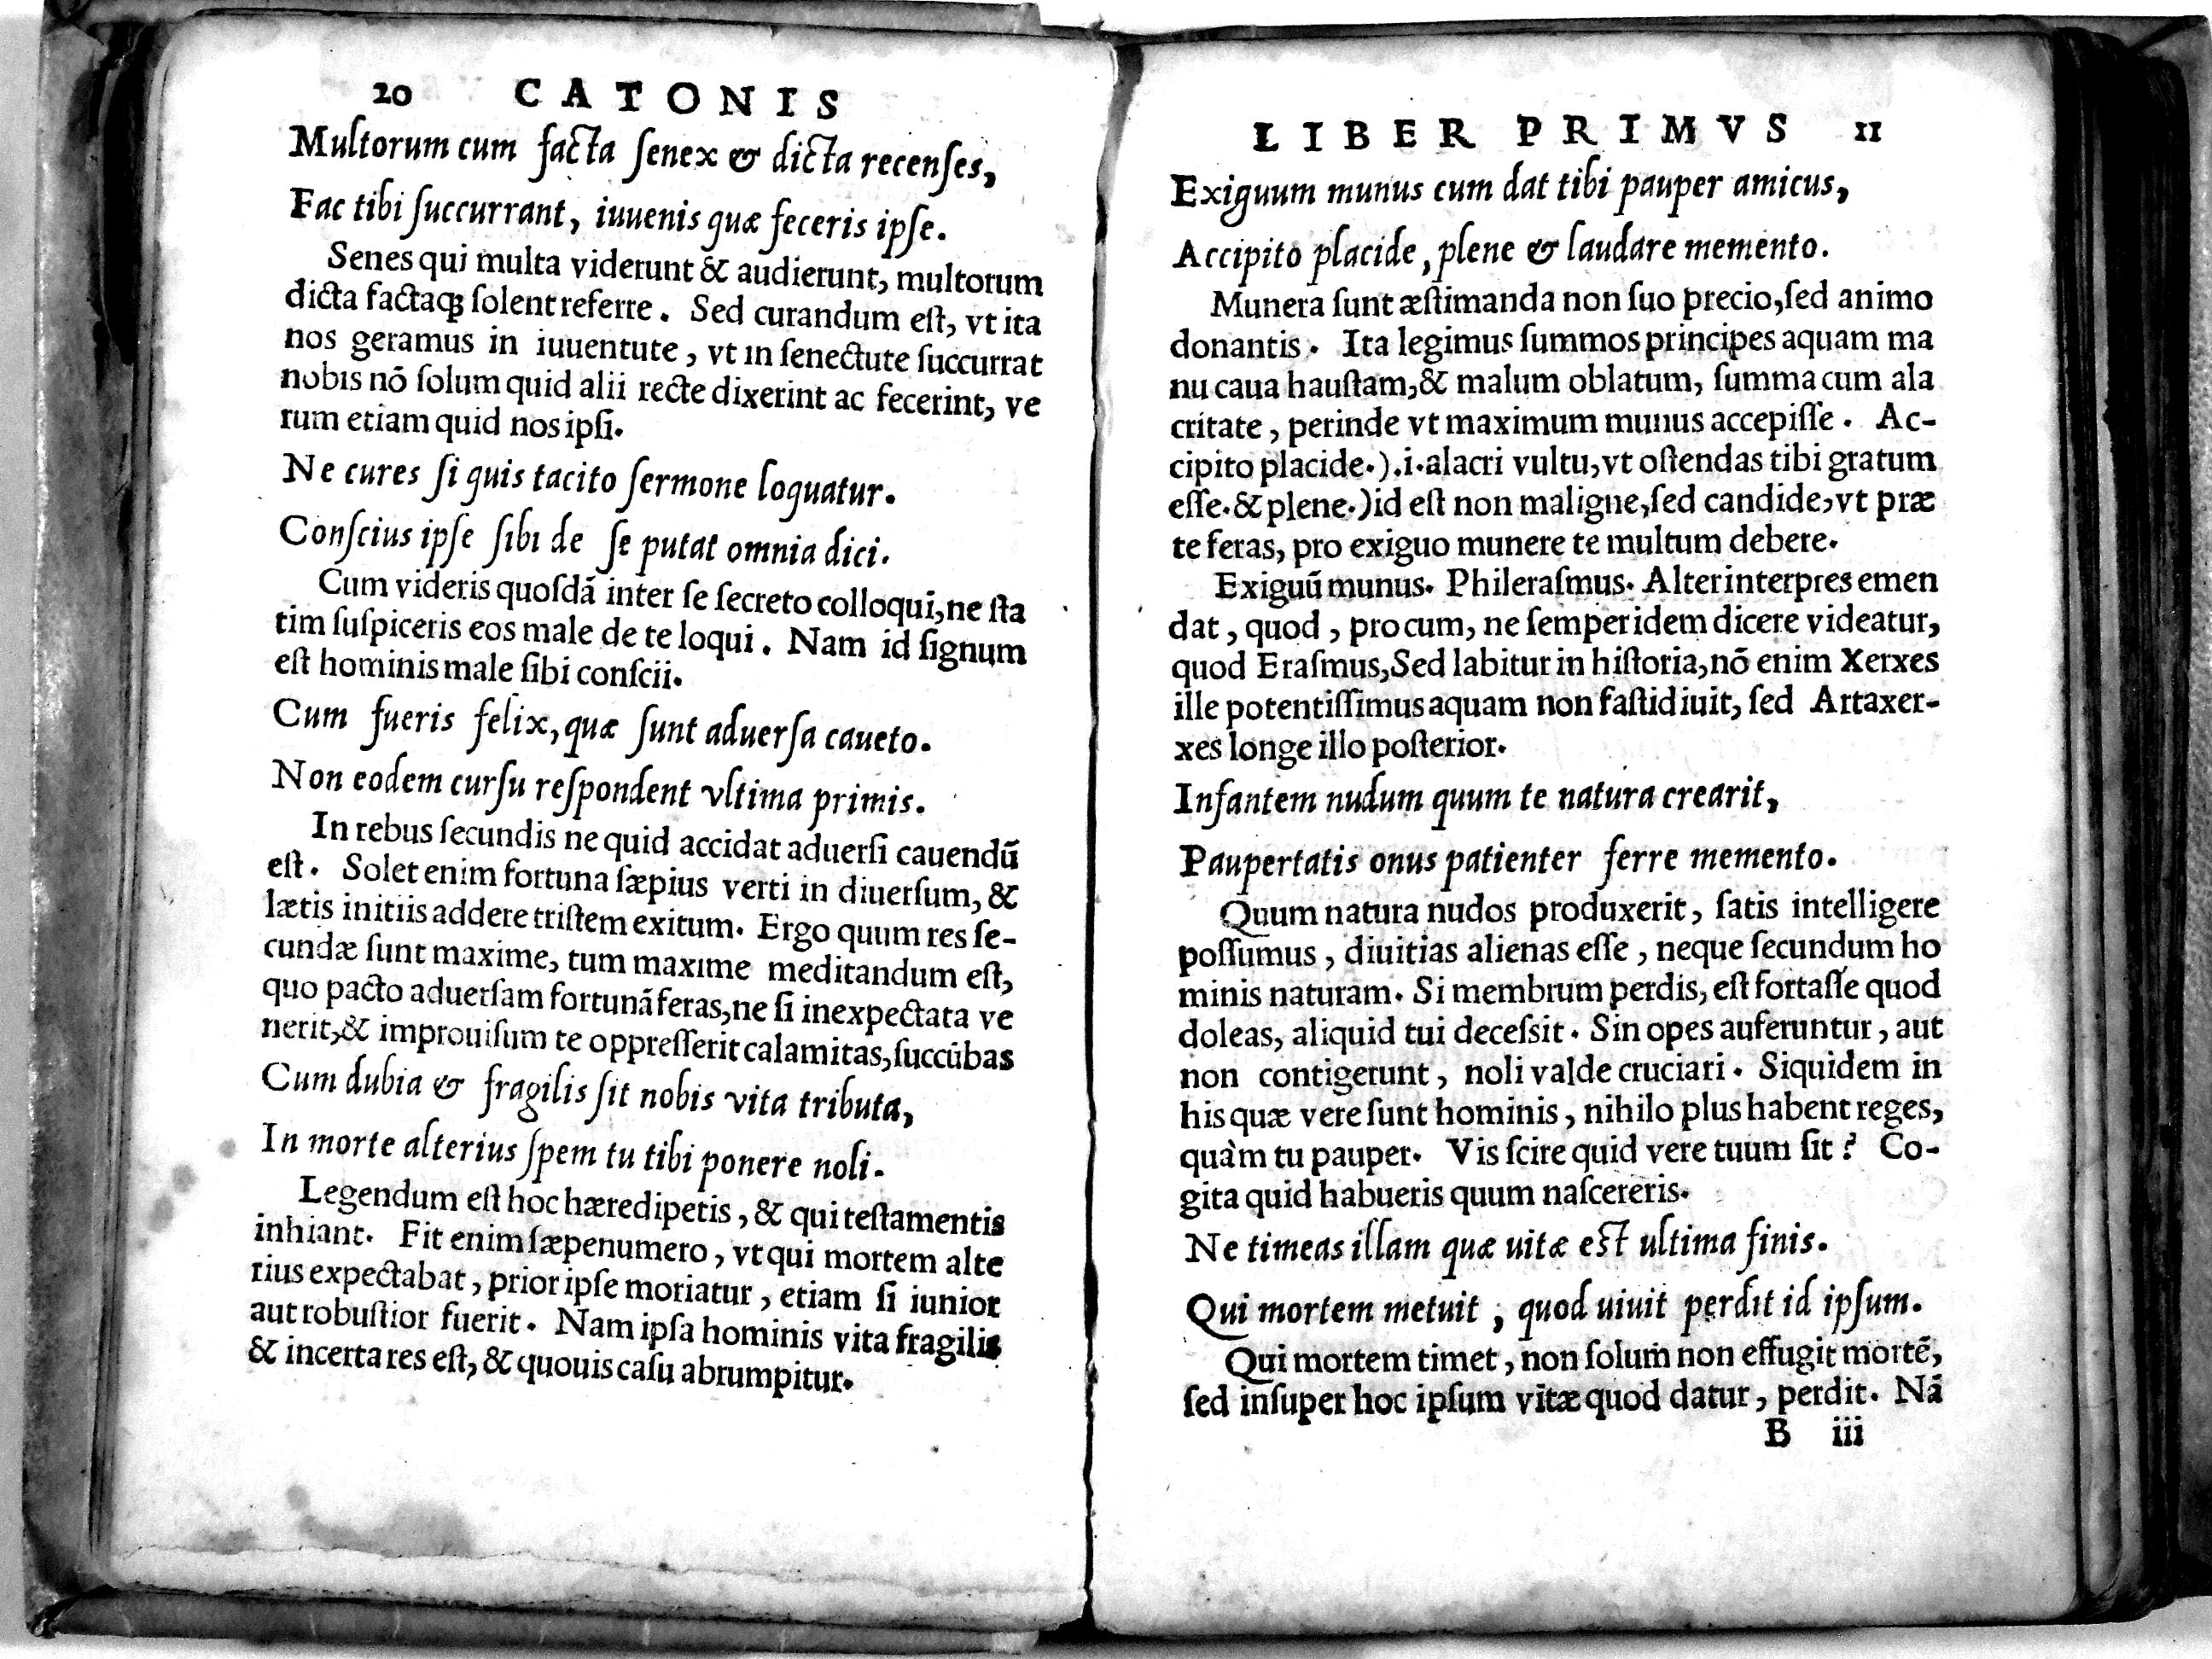 20 CATONIS
Multorum cum facta ſenex & dicta recenſes,
Fac tibi ſuccurrant, iuuenis quæ feceris ipſe.
Senes qui multa viderunt & audierunt, multorum
dicta factaqꝫ ſolent referre. Sed curandum eſt, vt ita
nos geramus in iuuentute, vt in ſenectute ſuccurrat
nobis nõ ſolum quid alii recte dixerint ac fecerint, ve
rum etiam quid nos ipſi.
Ne cures ſi quis tacito ſermone loquatur.
Conſcius ipſe ſibi de ſe putat omnia dici.
Cum videris quoſdã inter ſe ſecreto colloqui, ne ſta
tim ſuſpiceris eos male de te loqui. Nam id ſignum
eſt hominis male ſibi conſcii.
Cum fueris felix, quæ ſunt aduerſa caueto.
Non eodem curſu reſpondent vltima primis.
In rebus ſecundis ne quid accidat aduerſi cauendũ
eſt. Solet enim fortuna ſæpius verti in diuerſum, &
lætis initiis addere triſtem exitum. Ergo quum res ſe-
cundæ ſunt maxime, tum maxime meditandum eſt,
quo pacto aduerſam fortunã feras, ne ſi inexpectata ve
nerit, & improuiſum te oppreſſerit calamitas, ſuccũbas
Cum dubia & fragilis ſit nobis vita tributa,
In morte alterius ſpem tu tibi ponere noli.
Legendum eſt hoc hæredipetis, & qui teſtamentis
inhiant. Fit enim ſæpenumero, vt qui mortem alte
rius expectabat, prior ipſe moriatur, etiam ſi iunior
aut robuſtior fuerit. Nam ipſa hominis vita fragilis
& incerta res eſt, & quouis caſu abrumpitur.
LIBER PRIMVS 11
Exiguum munus cum dat tibi pauper amicus,
Accipito placide, plene & laudare memento.
Munera ſunt æſtimanda non ſuo precio, ſed animo
donantis. Ita legimus ſummos principes aquam ma
nu caua hauſtam, & malum oblatum, ſumma cum ala
critate, perinde vt maximum munus accepiſſe. Ac-
cipito placide.).i. alacri vultu, vt oſtendas tibi gratum
eſſe. & plene.) id eſt non maligne, ſed candide, vt præ
te feras, pro exiguo munere te multum debere.
Exiguũ munus. Phileraſmus. Alter interpres emen
dat, quod, pro cum, ne ſemper idem dicere videatur,
quod Eraſmus, Sed labitur in hiſtoria, nõ enim Xerxes
ille potentiſſimus aquam non faſtidiuit, ſed Artaxer-
xes longe illo poſterior.
Infantem nudum quum te natura crearit,
Paupertatis onus patienter ferre memento.
Quum natura nudos produxerit, ſatis intelligere
poſſumus, diuitias alienas eſſe, neque ſecundum ho
minis naturam. Si membrum perdis, eſt fortaſſe quod
doleas, aliquid tui deceſsit. Sin opes auferuntur, aut
non contigerunt, noli valde cruciari. Siquidem in
his quæ vere ſunt hominis, nihilo plus habent reges,
quàm tu pauper. Vis ſcire quid vere tuum ſit? Co-
gita quid habueris quum naſcereris.
Ne timeas illam quæ uitæ eſt ultima finis.
Qui mortem metuit, quod uiuit perdit id ipſum.
Qui mortem timet, non ſolum non effugit mortẽ,
ſed inſuper hoc ipſum vitæ quod datur, perdit. Nã
B iii